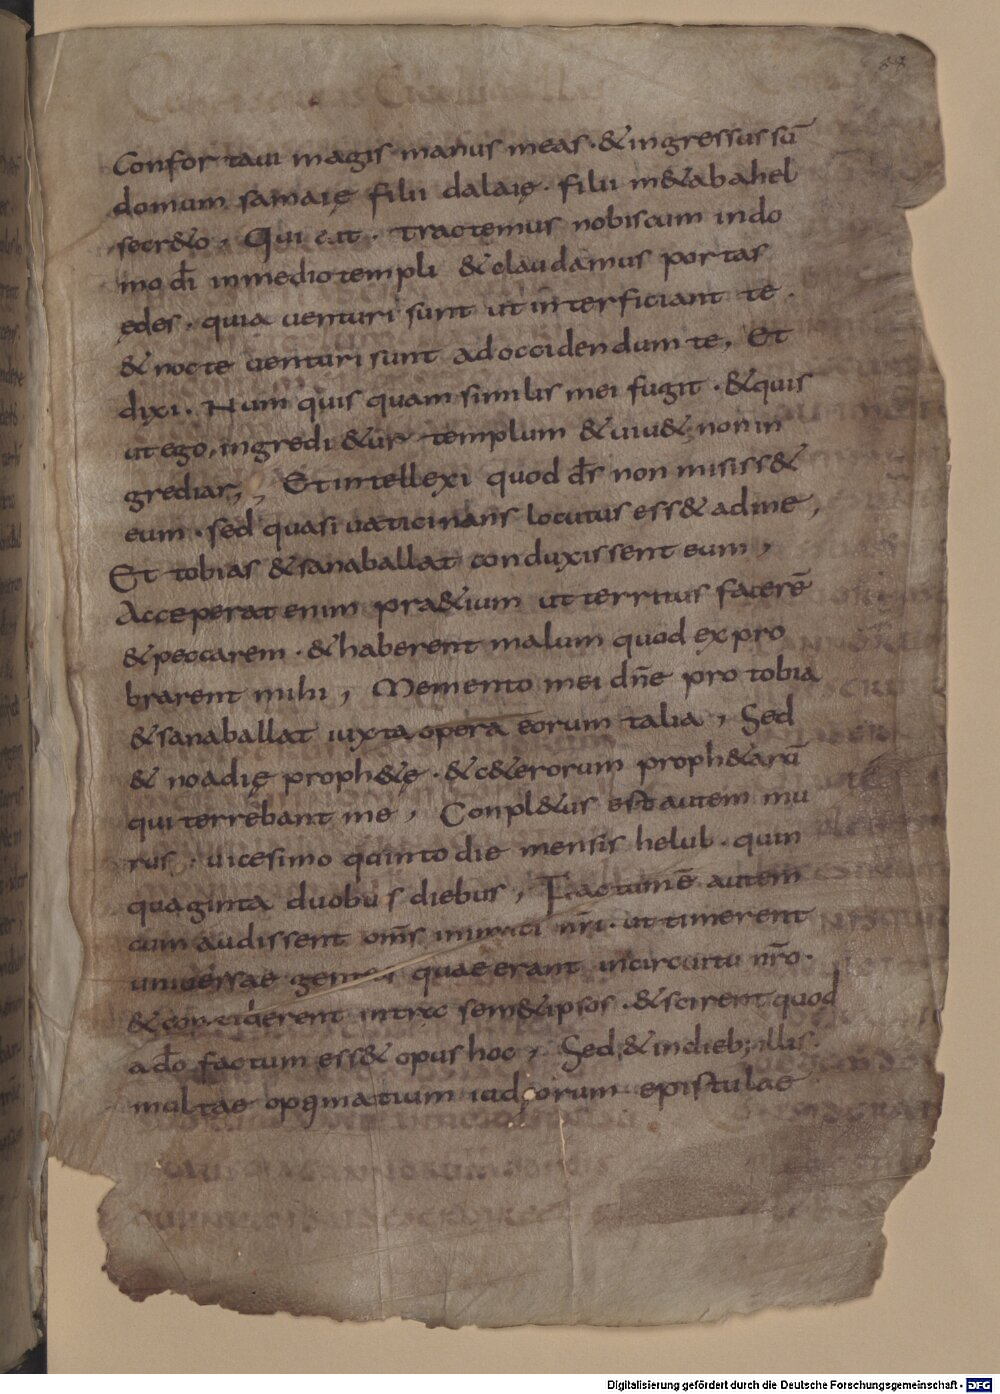 Confortaui magis manus meas · & ingressus sū
domum samaię filii dalaię · filii m&abahel
secr&o , Qui ait · tractemus nobiscum in do
mo dī in medio templi & claudamus portas
ędes · quia uenturi sunt ut interficiant te ·
& nocte uenturi sunt ad occidendum te , Et
dixi · Num quis quam similis mei fugit · & quis
ut ego , ingredi&ur templum & uiu& non in
grediar , , Et intellexi quod d̄s non misiss&
eum · sed quasi uaticinans locutus ess& ad me ,
Et tobias & sanaballat conduxissent eum ,
Acceperat enim pr&ium ut territus facerē
& peccarem · & haberent malum quod expro
brarent mihi , Memento mei dn̄e pro tobia
& sanaballat iuxta opera eorum talia , Sed
& noadię proph&ę · & c&erorum proph&arū
qui terrebant me , Conpl&us est autem mu
rus · uicesimo quinto die mensis helub · quin
quaginta duobus diebus , Factum ē autem
cum audissent om̄s inimici nr̄i · ut timerent
uniuersae gentes quae erant in circuitu nr̄o ·
& conciderent intra sem&ipsos · & scirent quod
a dō factum ess& opus hoc , Sed & in dieb; illis
multae optimatium iudęorum epistulae
Digitalisierung gefördert durch die Deutsche Forschungsgemeinschaft - DFG